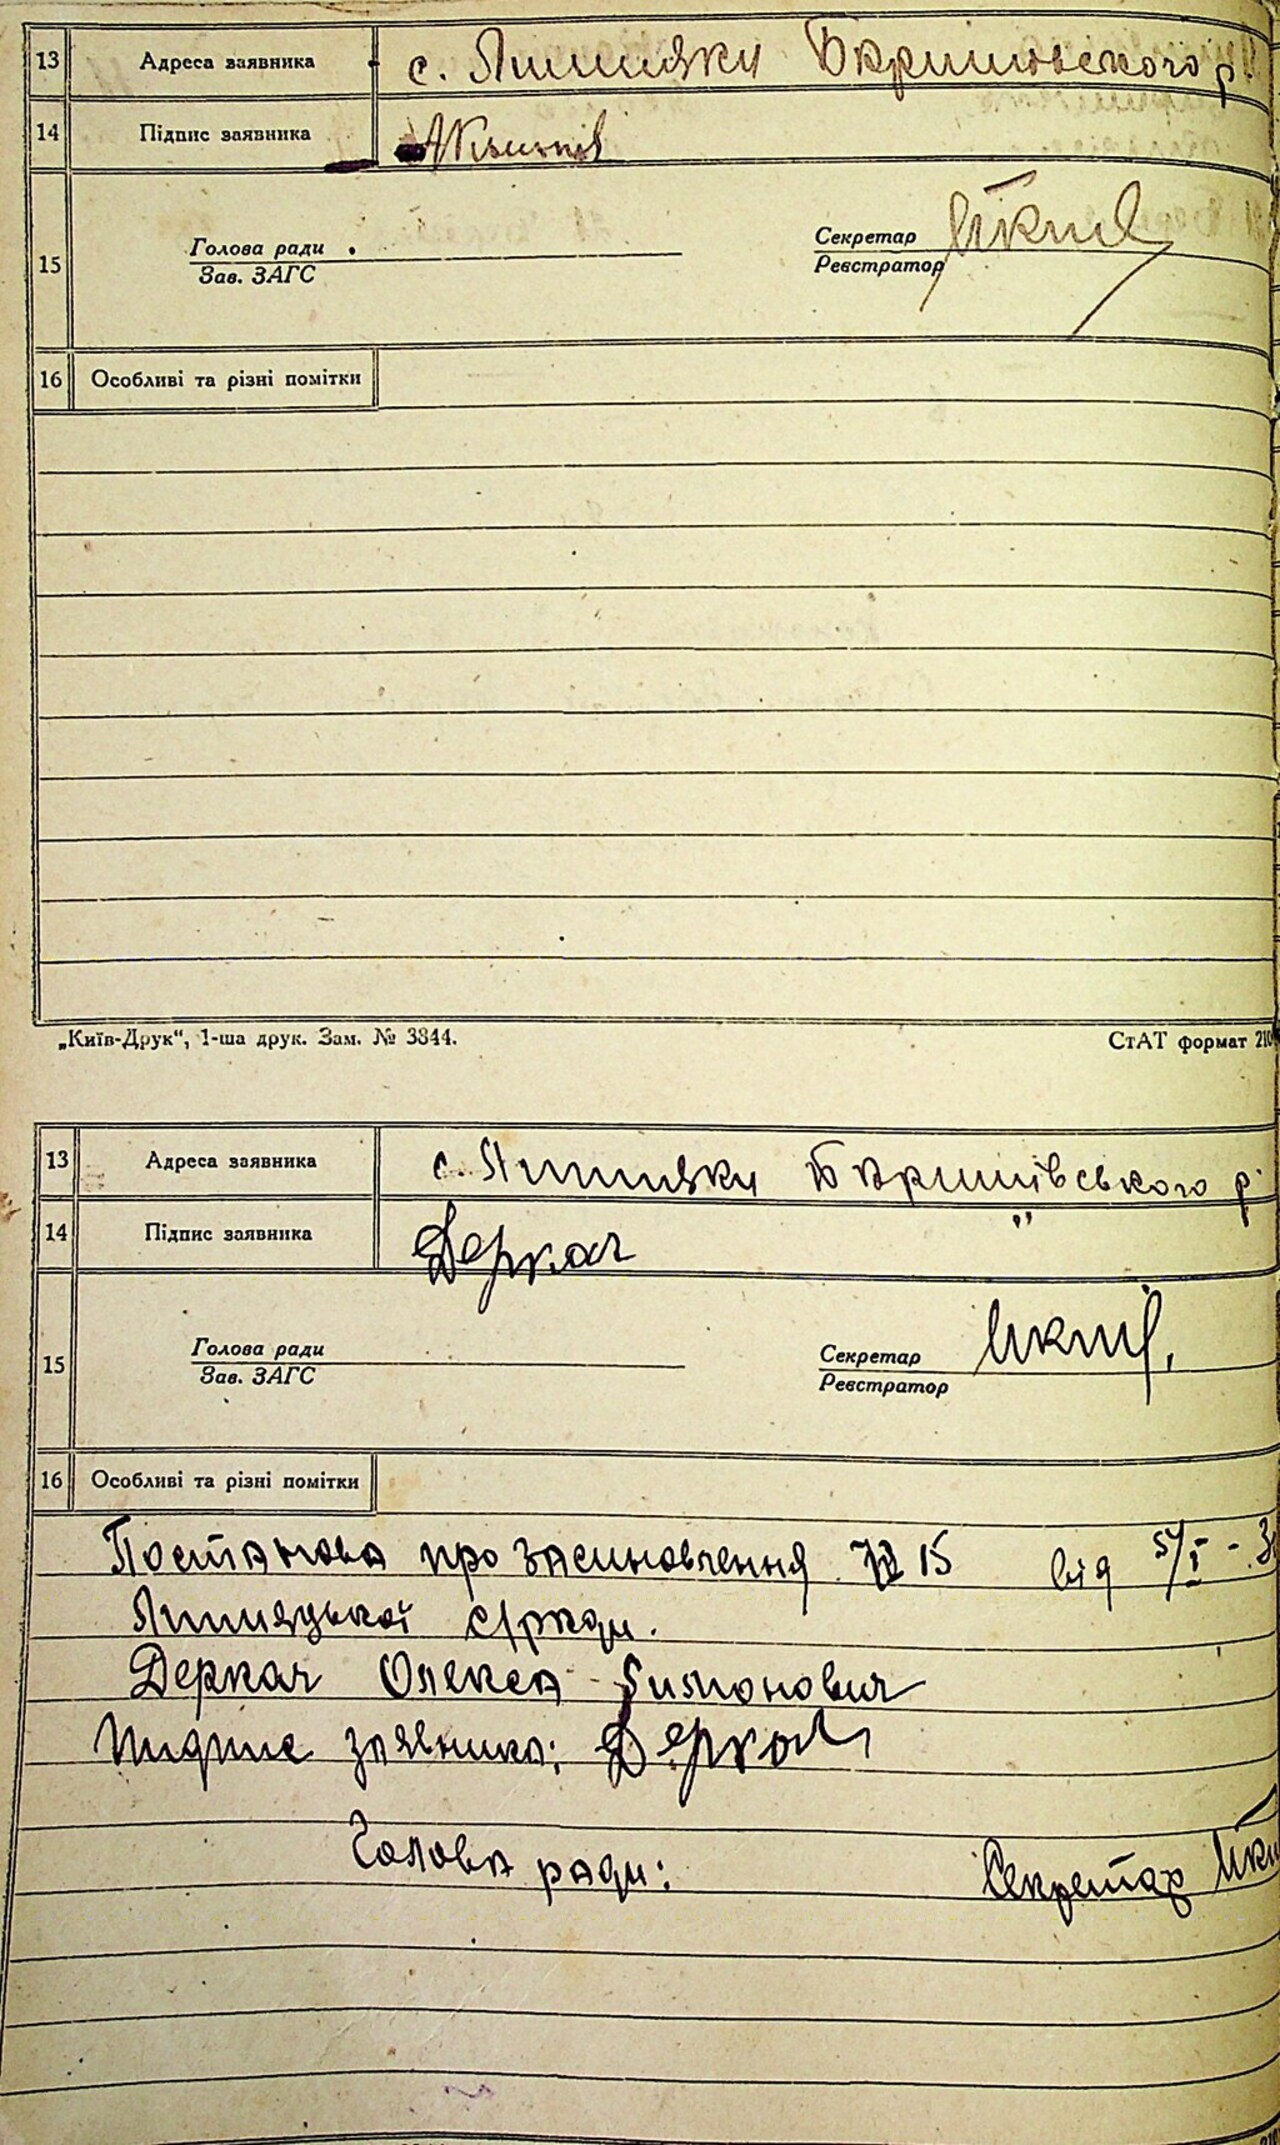 13 Адреса заявника с. Лишняки Баришовского р.
14 Підпис заявника
15 Голова ради Секретар
Зав. ЗАГС Реєстратор
16 Особливі та різні помітки
„Київ-Друк“, 1-ша друк. Зам. № 3344. СтАТ формат 210
13 Адреса заявника с. Лишняки Баришівського р.
14 Підпис заявника Деркач "
15 Голова ради Секретар
Зав. ЗАГС Реєстратор
16 Особливі та різні помітки
Постанова про засиновлення № 15 від 5/I - 3
Лишняцької с/ради.
Деркач Олекса Симонович
Підпис заявника: Деркач
Голова ради: Секретар